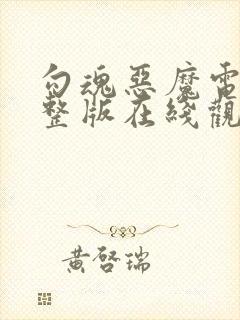 勾魂惡魔電
整版在綫觀
黃啓瑞